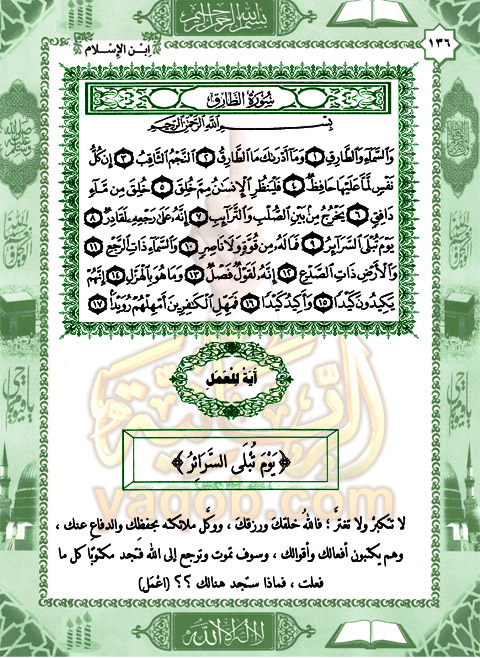 بسم الله الرحمن الرحيم
١٣٦
ابن الإسلام
سُورَةُ الطَّارِقِ
بِسْمِ اللَّهِ الرَّحْمَٰنِ الرَّحِيمِ
وَالسَّمَاءِ وَالطَّارِقِ ١ وَمَا أَدْرَىٰكَ مَا الطَّارِقُ ٢ النَّجْمُ الثَّاقِبُ ٣ إِن كُلُّ
نَفْسٍ لَّمَّا عَلَيْهَا حَافِظٌ ٤ فَلْيَنظُرِ الْإِنسَٰنُ مِمَّ خُلِقَ ٥ خُلِقَ مِن مَّاءٍ
دَافِقٍ ٦ يَخْرُجُ مِنْ بَيْنِ الصُّلْبِ وَالتَّرَائِبِ ٧ إِنَّهُ عَلَىٰ رَجْعِهِ لَقَادِرٌ ٨
يَوْمَ تُبْلَى السَّرَائِرُ ٩ فَمَا لَهُ مِن قُوَّةٍ وَلَا نَاصِرٍ ١٠ وَالسَّمَاءِ ذَاتِ الرَّجْعِ ١١
وَالْأَرْضِ ذَاتِ الصَّدْعِ ١٢ إِنَّهُ لَقَوْلٌ فَصْلٌ ١٣ وَمَا هُوَ بِالْهَزْلِ ١٤ إِنَّهُمْ
يَكِيدُونَ كَيْدًا ١٥ وَأَكِيدُ كَيْدًا ١٦ فَمَهِّلِ الْكَٰفِرِينَ أَمْهِلْهُمْ رُوَيْدًا ١٧
آيَةٌ لِلْعَمَلِ
﴿ يَوْمَ تُبْلَى السَّرَائِرُ ﴾
yaqob.com
لا تتكبرْ ولا تغترَّ ؛ فاللهُ خلقكَ ورزقكَ ، ووكَّل ملائكته بحفظِك والدفاعِ عنك ،
وهم يكتبون أفعالك وأقوالك ، وسوف تموت وترجع إلى الله فتجد مكتوبًا كل ما
فعلت ، فماذا ستجد هنالك ؟؟ (اعْمَل)
لا إله إلا الله